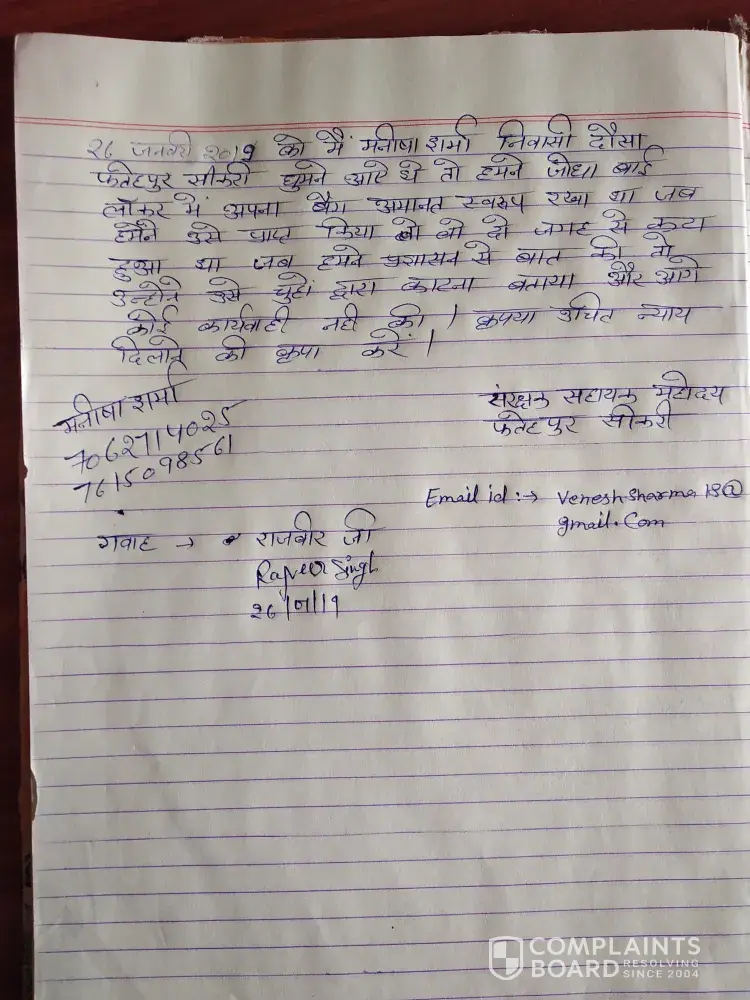 26 जनवरी 2019 को मैं मनीषा शर्मा निवासी दौसा
फतेहपुर सीकरी घुमने आऐ थे तो हमने जोधा बाई
लॉकर में अपना बैग अमानत स्वरूप रखा था जब
हमने उसे प्राप्त किया तो वो दो जगह से कटा
हुआ था जब हमने प्रशासन से बात की तो
उन्होने उसे चुहों द्वारा काटना बताया और आगे
कोई कार्यवाही नही की। कृपया उचित न्याय
दिलाने की कृपा करें।
संरक्षक सहायक महोदय
फतेहपुर सीकरी
मनीषा शर्मा
7062714025
7615098561
Email id :→ Veneshsharma18@
gmail.Com
गवाह → राजवीर जी
Rajveer Singh
26/01/19
COMPLAINTS
BOARD RESOLVING
SINCE 2004